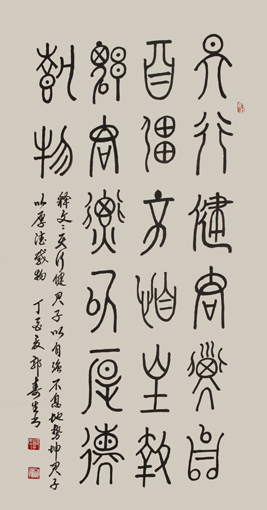 天行健君子以
自彊不息地埶
坤君子以厚德
載物
释文：天行健君子以自强不息地势坤君子
以厚德载物 丁酉夏郭春生书